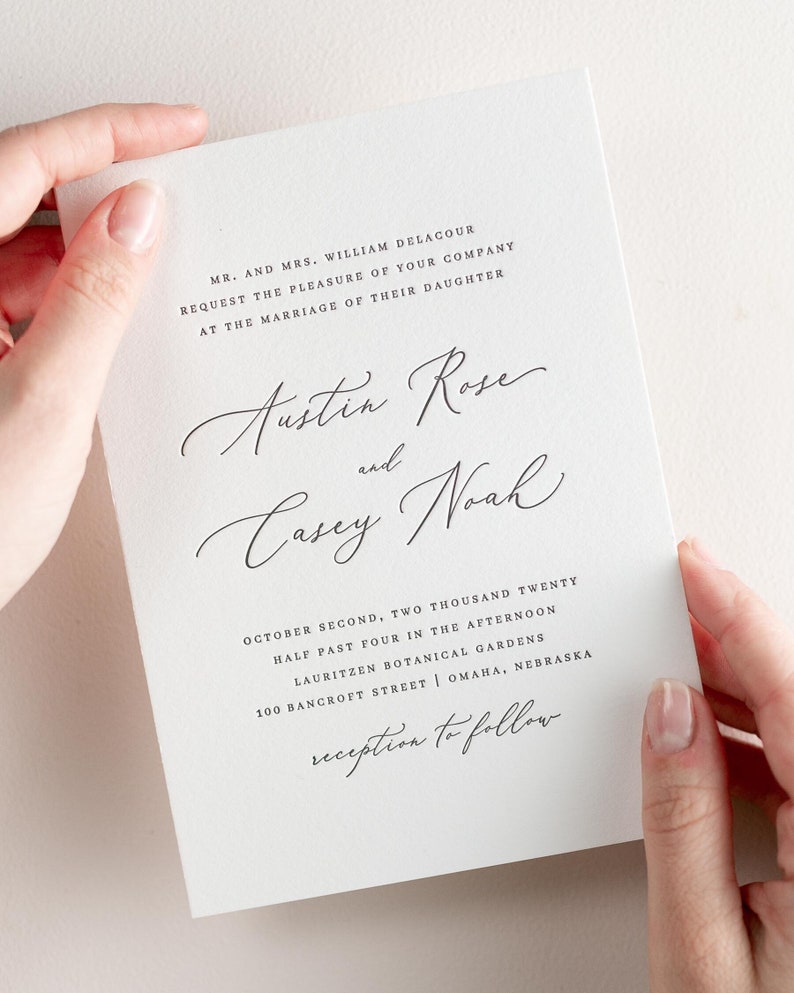 MR. AND MRS. WILLIAM DELACOUR
REQUEST THE PLEASURE OF YOUR COMPANY
AT THE MARRIAGE OF THEIR DAUGHTER
Austin Rose
and
Casey Noah
OCTOBER SECOND, TWO THOUSAND TWENTY
HALF PAST FOUR IN THE AFTERNOON
LAURITZEN BOTANICAL GARDENS
100 BANCROFT STREET | OMAHA, NEBRASKA
reception to follow